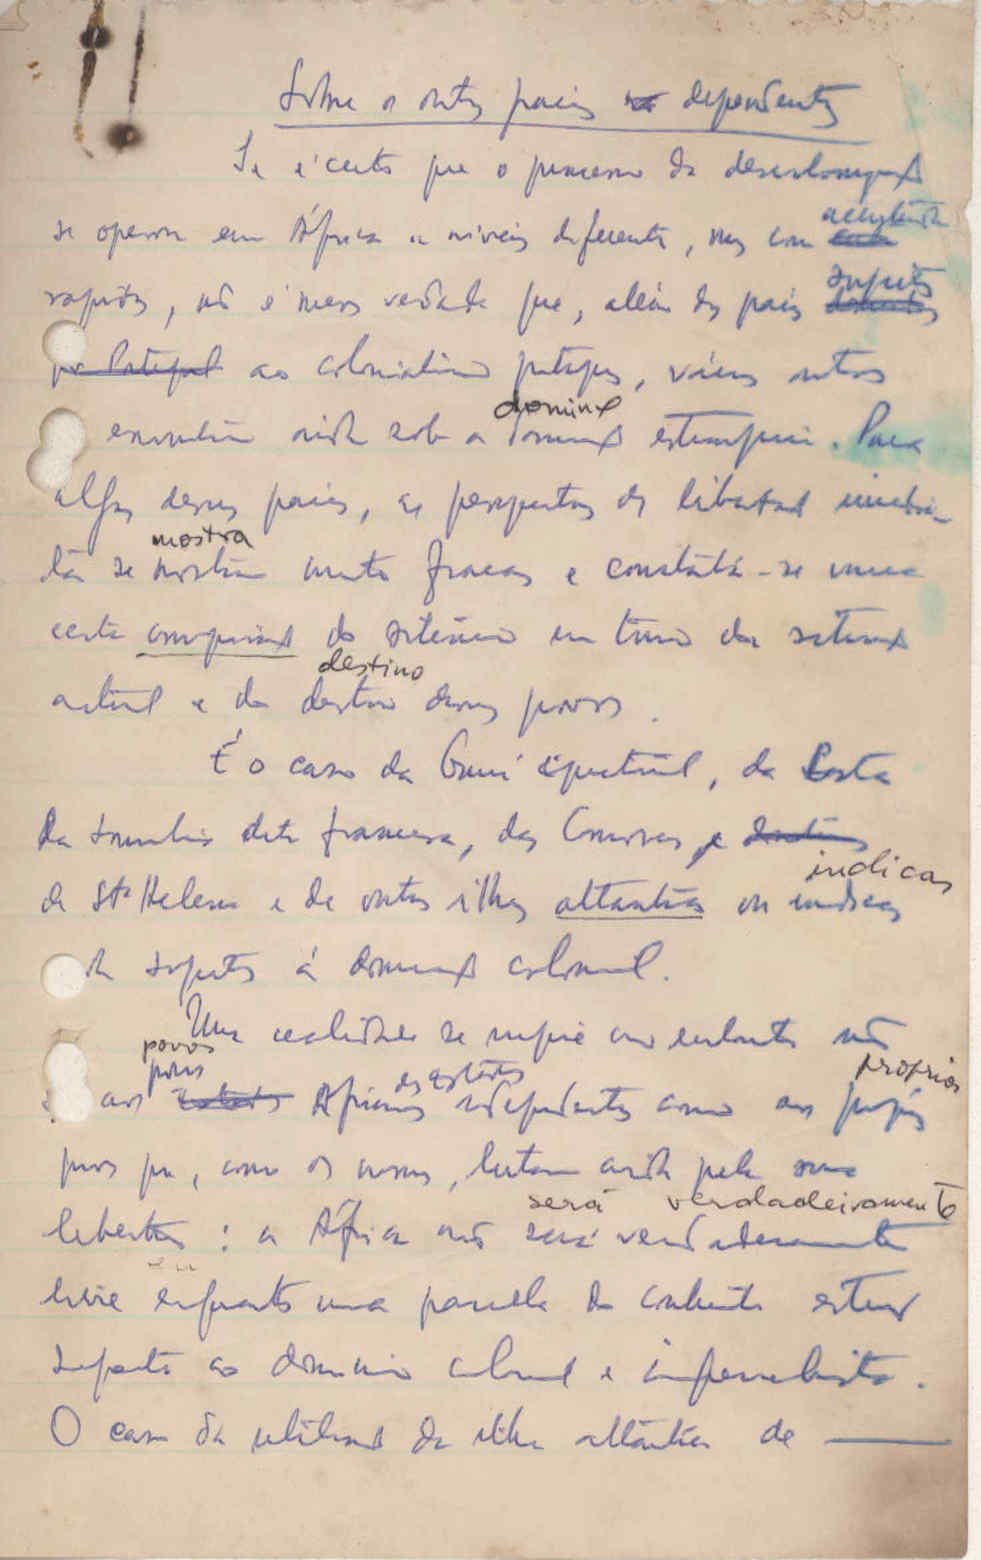 Sobre os outros países dependentes
Se é certo que o processo da descolonização
acelerada
se operou em África a níveis diferentes, mas com
sujeitos
rapidez, não é menos verdade que, além dos países
por Portugal ao colonialismo português, vários outros
dominação
encontram ainda sob a dominação estrangeira. Para
alguns desses países, as perspectivas de libertação imedia-
mostra
tas se mostram muito fracas e constata-se uma
certa conspiração do silêncio em torno da situação
destino
actual e do destino desses povos.
É o caso da Guiné equatorial, da Costa
da Somália dita francesa, das Comores, e
indicas
de Sta Helena e de outras ilhas atlânticas ou índicas
sujeitas à dominação colonial.
Uma realidade se impõe no entanto não
povos
países
dos estados próprios
aos Estados Africanos independentes como aos próprios
povos que, como os nossos, lutam ainda pela sua
será verdadeiramente
libertação: a África não será verdadeiramente
livre enquanto uma parcela do continente estiver
sujeita ao domínio colonial e imperialista.
O caso da utilização da ilha atlântica de